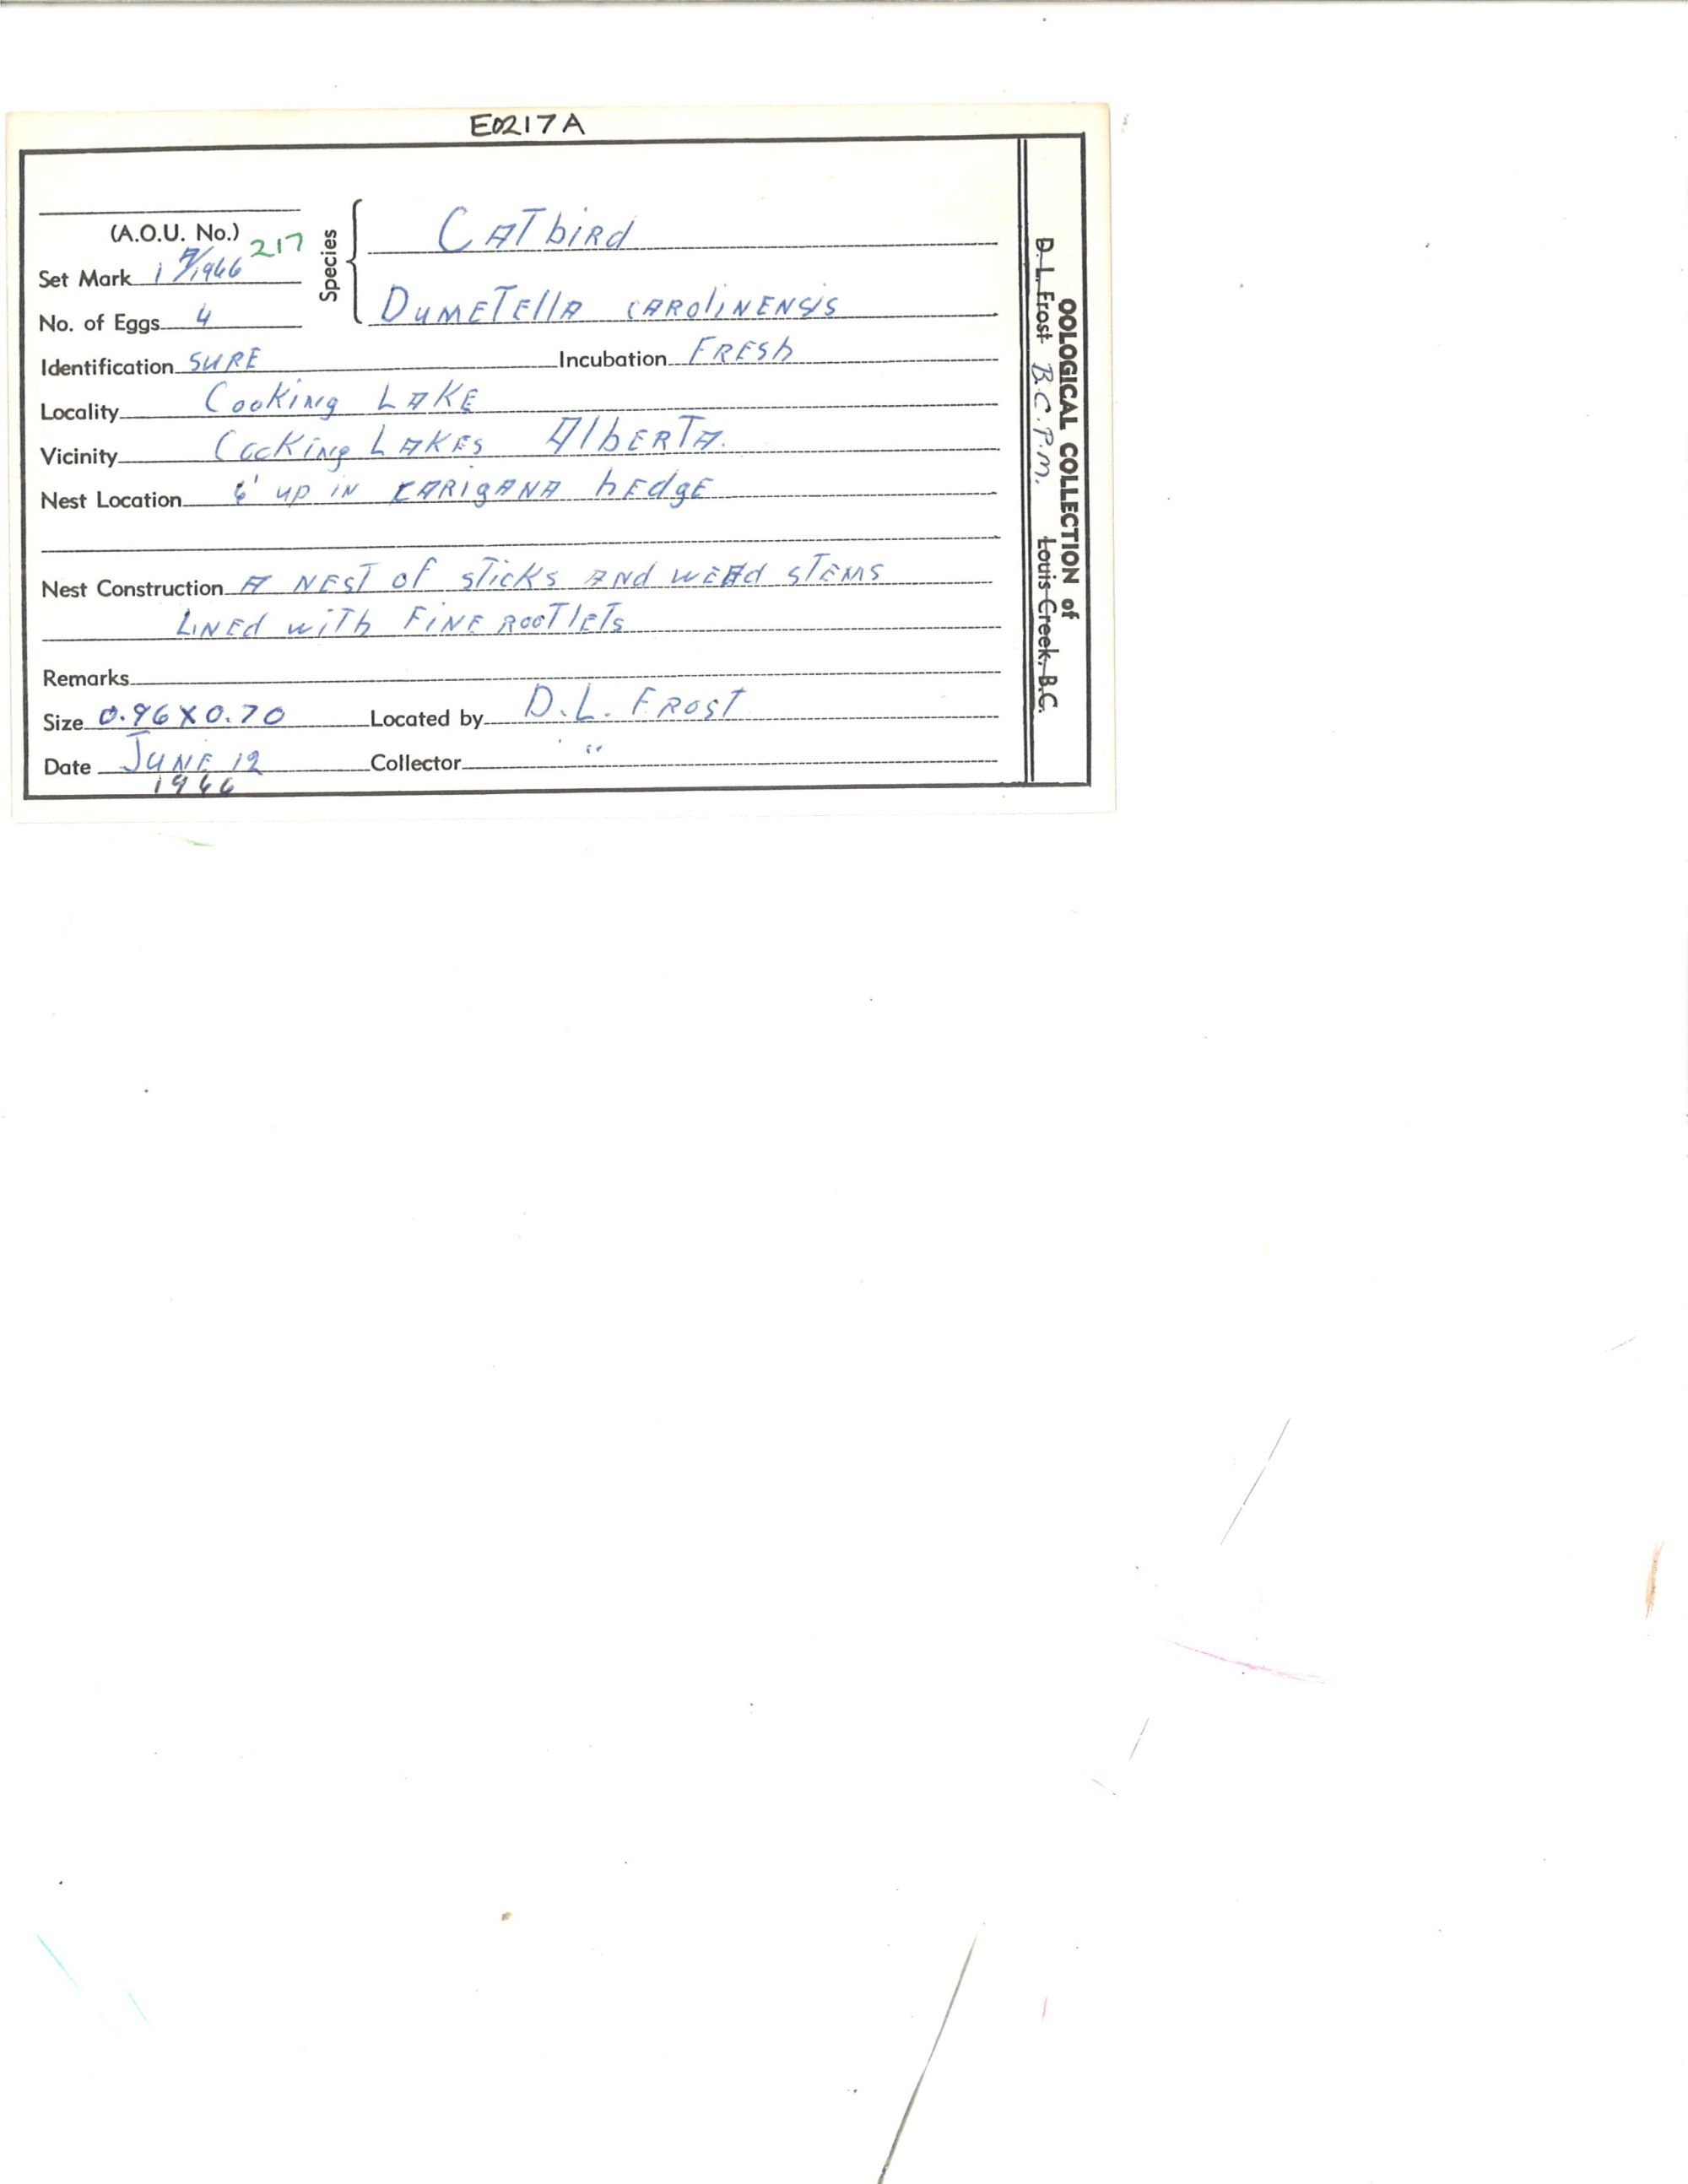 E0217A
(A.O.U. No.) 217
Set Mark 1 4/1966
No. of Eggs 4
Species
CATbiRd
DumETEllA CAROliNENSiS
Identification SURE Incubation FRESh
Locality Cooking LAKE
Vicinity Cooking LAKES AlbERTA.
Nest Location 6' up iN CARigANA hEdgE
Nest Construction A NEST of sTicks ANd wEEd sTEMS
LiNEd wiTh FiNE RooTlETs
Remarks
Size 0.96 X 0.70 Located by D.L. FROST
Date JUNE 12 Collector " "
1966
OOLOGICAL COLLECTION of
D. L. Frost B.C.P.M. Louis Creek, B.C.